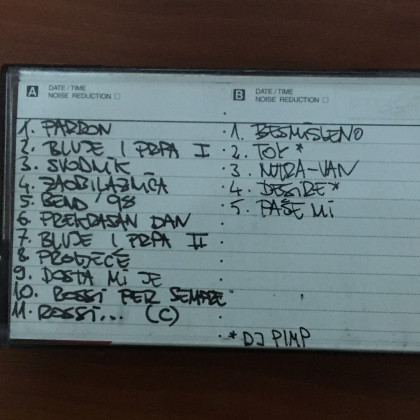 A DATE/TIME
NOISE REDUCTION
1. PARDON
2. BLUJE I PRPA I
3. SVODNIK
4. ZAOBILAZNICA
5. BEND '98
6. PREKRASAN DAN
7. BLUJE I PRPA II
8. PROLJEĆE
9. DOSTA MI JE
10. BOSSI PER SEMPRE
11. ROSSI... (C)
B DATE/TIME
NOISE REDUCTION
1. BESMISLENO
2. TOY *
3. NUTRA-VAN
4. DESIRE*
5. PAŠE MI
* DJ PIMP